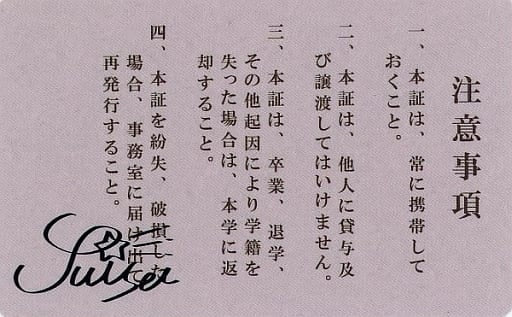 注意事項
一、本証は、常に携帯して
おくこと。
二、本証は、他人に貸与及
び譲渡してはいけません。
三、本証は、卒業、退学、
その他起因により学籍を
失った場合は、本学に返
却すること。
四、本証を紛失、破損した
場合、事務室に届け出て
再発行すること。
Suisei